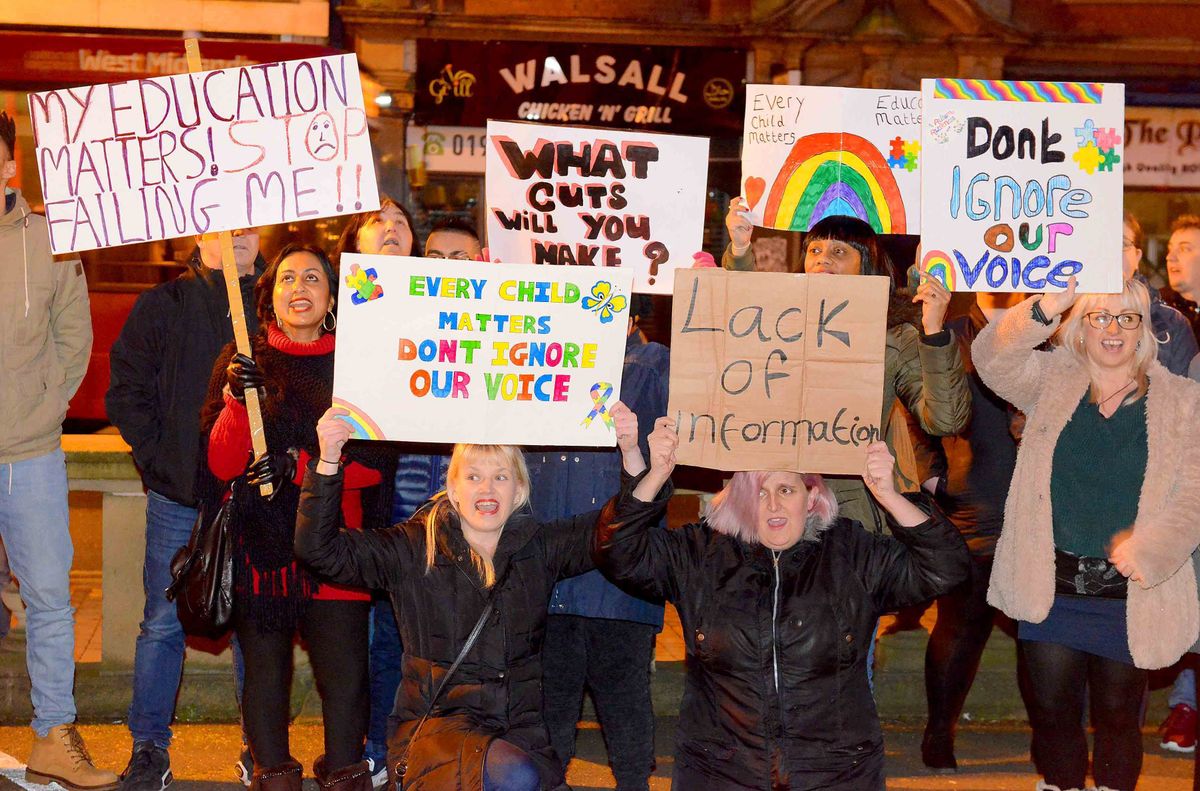 West Midlands
Grill
WALSALL
CHICKEN 'N' GRILL
019
The
MY EDUCATION
MATTERS! STOP
FAILING ME!!
WHAT
CUTS
WILL YOU
MAKE?
Every
Child
matters
Educa
Matte
Dont
Ignore
our
Voice
EVERY CHILD
MATTERS
DONT IGNORE
OUR VOICE
Lack
of
information